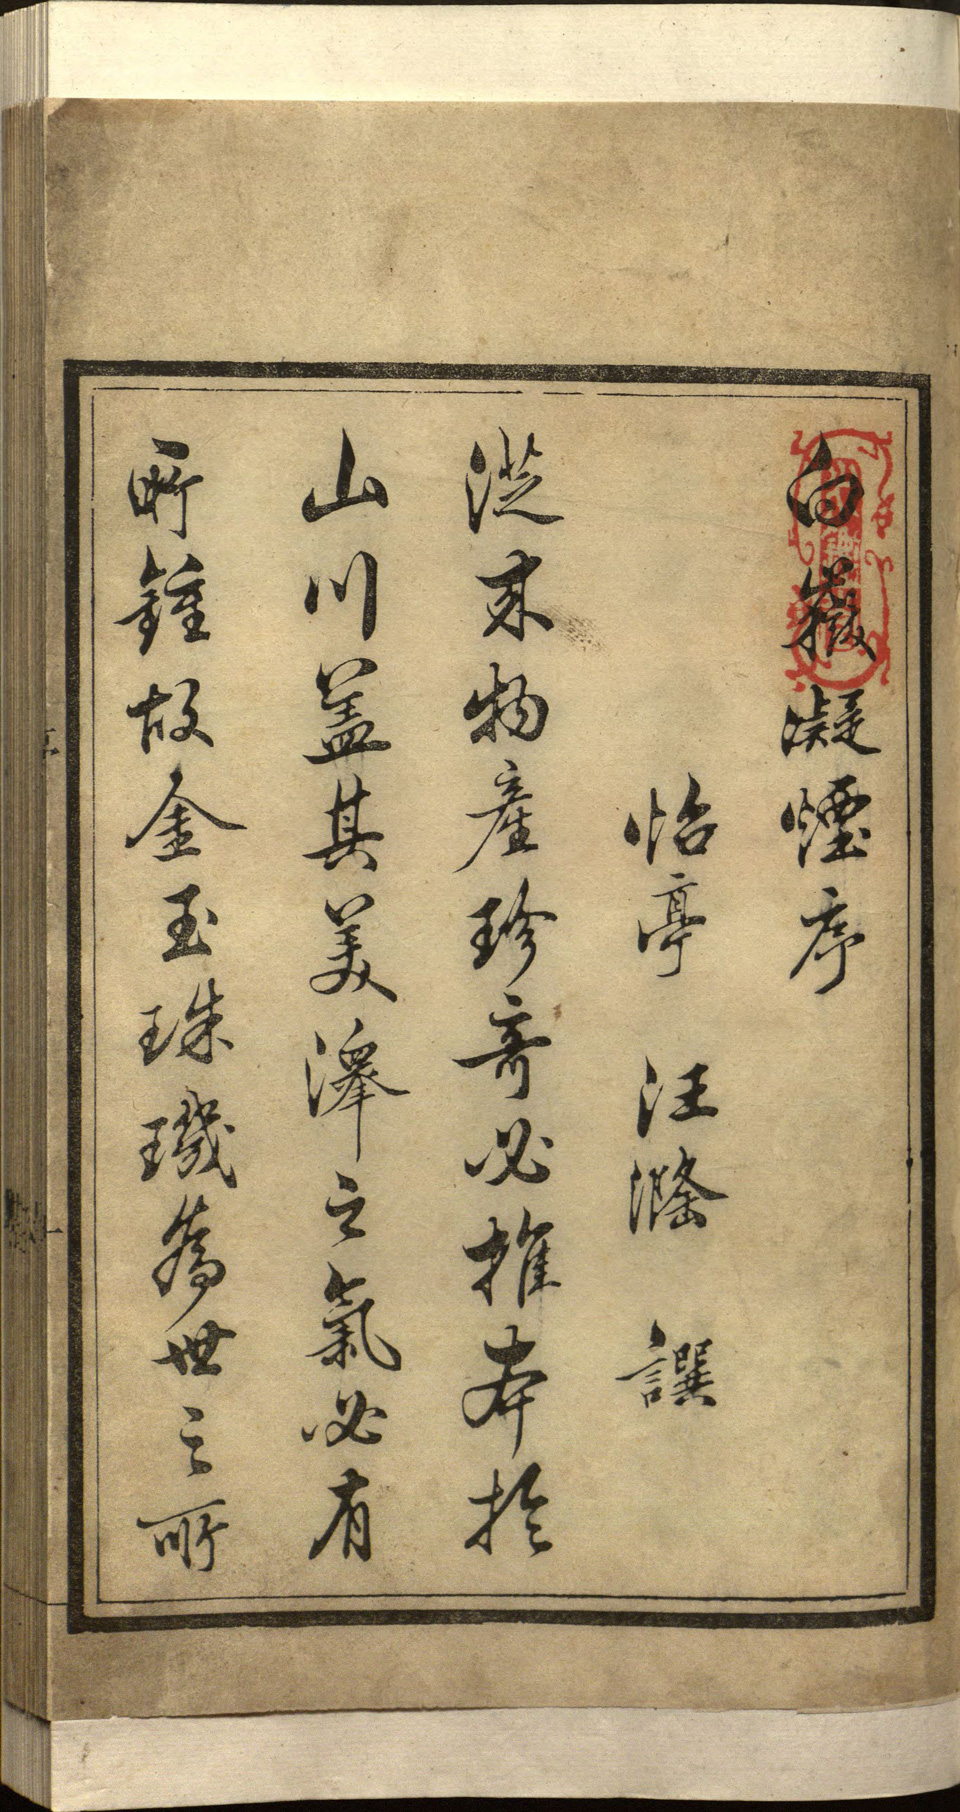 白嶽凝煙序
怡亭 汪滌 譔
從来物產珍竒必推本於
山川盖其美澤之氣必有
所鍾故金玉珠璣為世之所